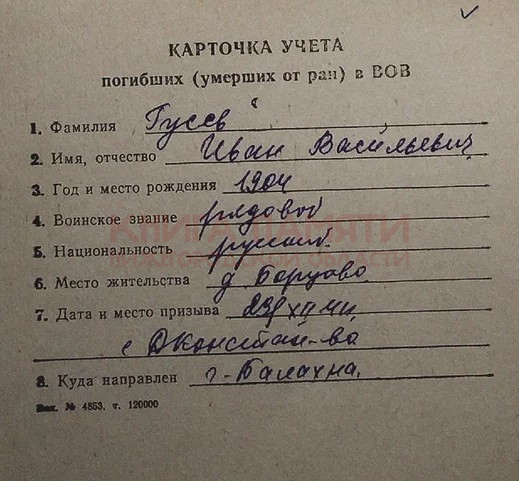 КАРТОЧКА УЧЕТА
погибших (умерших от ран) в ВОВ
1. Фамилия Гусев
2. Имя, отчество Иван Васильевич
3. Год и место рождения 1904
4. Воинское звание рядовой
КНИГА ПАМЯТИ
5. Национальность русский
ОБЛАСТИ
6. Место жительства д Борцово
7. Дата и место призыва
с
8. Куда направлен г. Балахна
Зак. № 4853. т. 120000